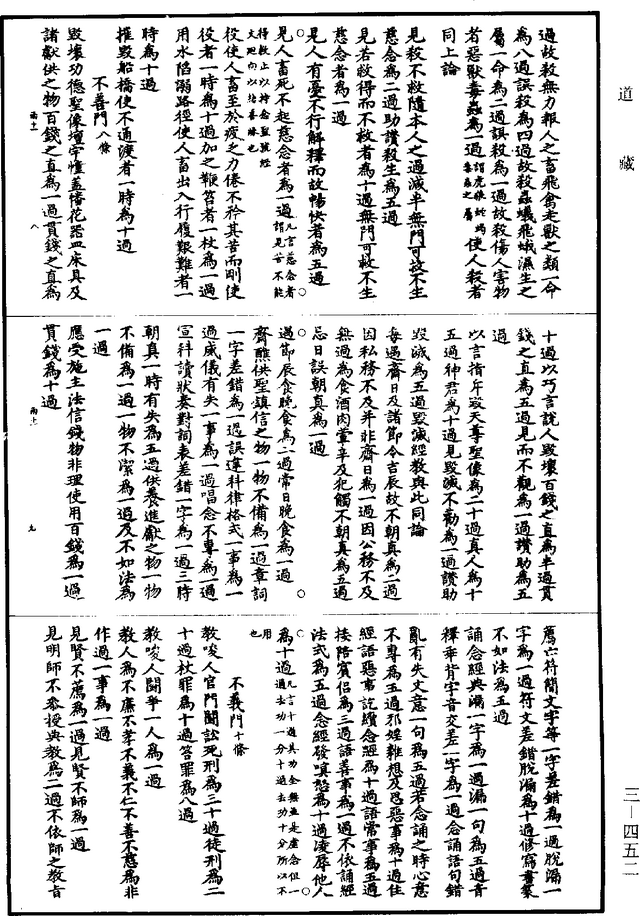 道藏
過故殺無力報人之畜飛禽走獸之類一命
為八過誤殺為四過故殺蟲蟻飛蛾濕生之
屬一命為二過誤殺為一過故殺傷人害物
者惡獸毒蟲為一過謂虎狼蛇蝎毒蟲之屬使人殺者
同上論
見殺不救隨本人之過減半無門可救不生
慈念為二過助讚殺生為五過
見若救得而不救者為十過無門可救不生
慈念者為一過
見人有憂不行解釋而故暢快者為五過
見人畜死不起慈念者為一過凡言慈念者謂見苦不能
得救止以持念聖號經文迴向以祐善緣也
役使人畜至於疲乏力倦不矜其苦而剛使
役者一時為十過加之鞭笞者一杖為一過
用水陷溺路徑使人畜出入行履艱難者一
時為十過
摧毀船橋使不通渡者一時為十過
不善門八條
毀壞功德聖像壇宇幢蓋幡花器皿床具及
諸獻供之物百錢之直為一過貫錢之直為
八
十過以巧言說人毀壞百錢之直為半過貫
錢之直為五過見而不觀為一過讚助為五
過
以言指斥毀天尊聖像為二十過真人為十
五過神君為十過見毀滅不勸為一過讚助
毀滅為五過毀滅經教與此同論
每遇齋日及諸節令吉辰故不朝真為二過
因私務不及并非齋日為一過因公務不及
無過為食酒肉葷辛及犯觸不朝真為五過
忌日誤朝真為一過
遇節辰食晚食為二過常日晚食為一過
齋醮供聖鎮信之物一物不備為一過章詞
一字差錯為一過誤違科律格式一事為一
過威儀有失一事為一過唱念不專為一過
宣科讀狀奏對詞表差錯一字為一過三時
朝真一時有失為五過供養進獻之物一物
不備為一過一物不潔為一過及不如法為
一過
應受施主法信錢物非理使用百錢為一過
貫錢為十過
九
薦亡符簡文字等一字差錯為一過脫漏一
字為一過符文差錯脫漏為十過修寫書篆
不如法為五過
誦念經典漏一字為一過漏一句為五過音
釋乖背字音交差一字為一過念誦語句錯
亂有失文意一句為五過若念誦之時心意
不專為五過邪婬雜想及思惡事為十過住
經語惡事訖續念經為十過語常事為五過
接陪賓侶為三過語善事為一過不依誦經
法式為五過念經發嗔怒為十過凌辱他人
為十過凡言十過其功全無並是虛念但一過去功一分十過去功十分所以不
用也
不義門十條
教唆人官門鬭訟死刑為三十過徒刑為二
十過杖罪為十過笞罪為八過
教唆人鬭爭一人為一過
教人為不廉不孝不義不仁不善不慈為非
作過一事為一過
見賢不薦為一過見賢不師為一過
見明師不參授典教為二過不依師之教旨
三－四五二